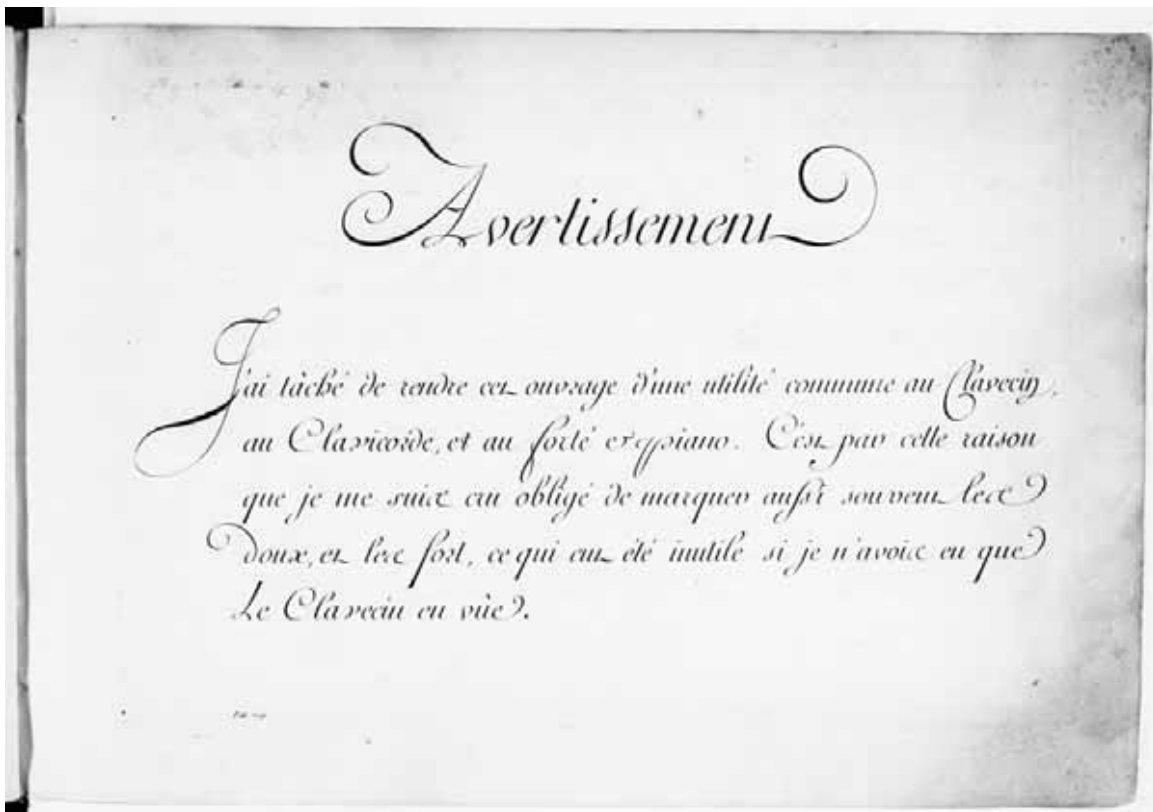 Avertissement
J'ai tâché de rendre cet ouvrage d'une utilité commune au Clavecin,
au Clavicorde, et au forté et piano. C'est par cette raison
que je me suis cru obligé de marquer aussi souvent les
doux, et les fort, ce qui eut été inutile si je n'avois eu que
Le Clavecin en vûe.